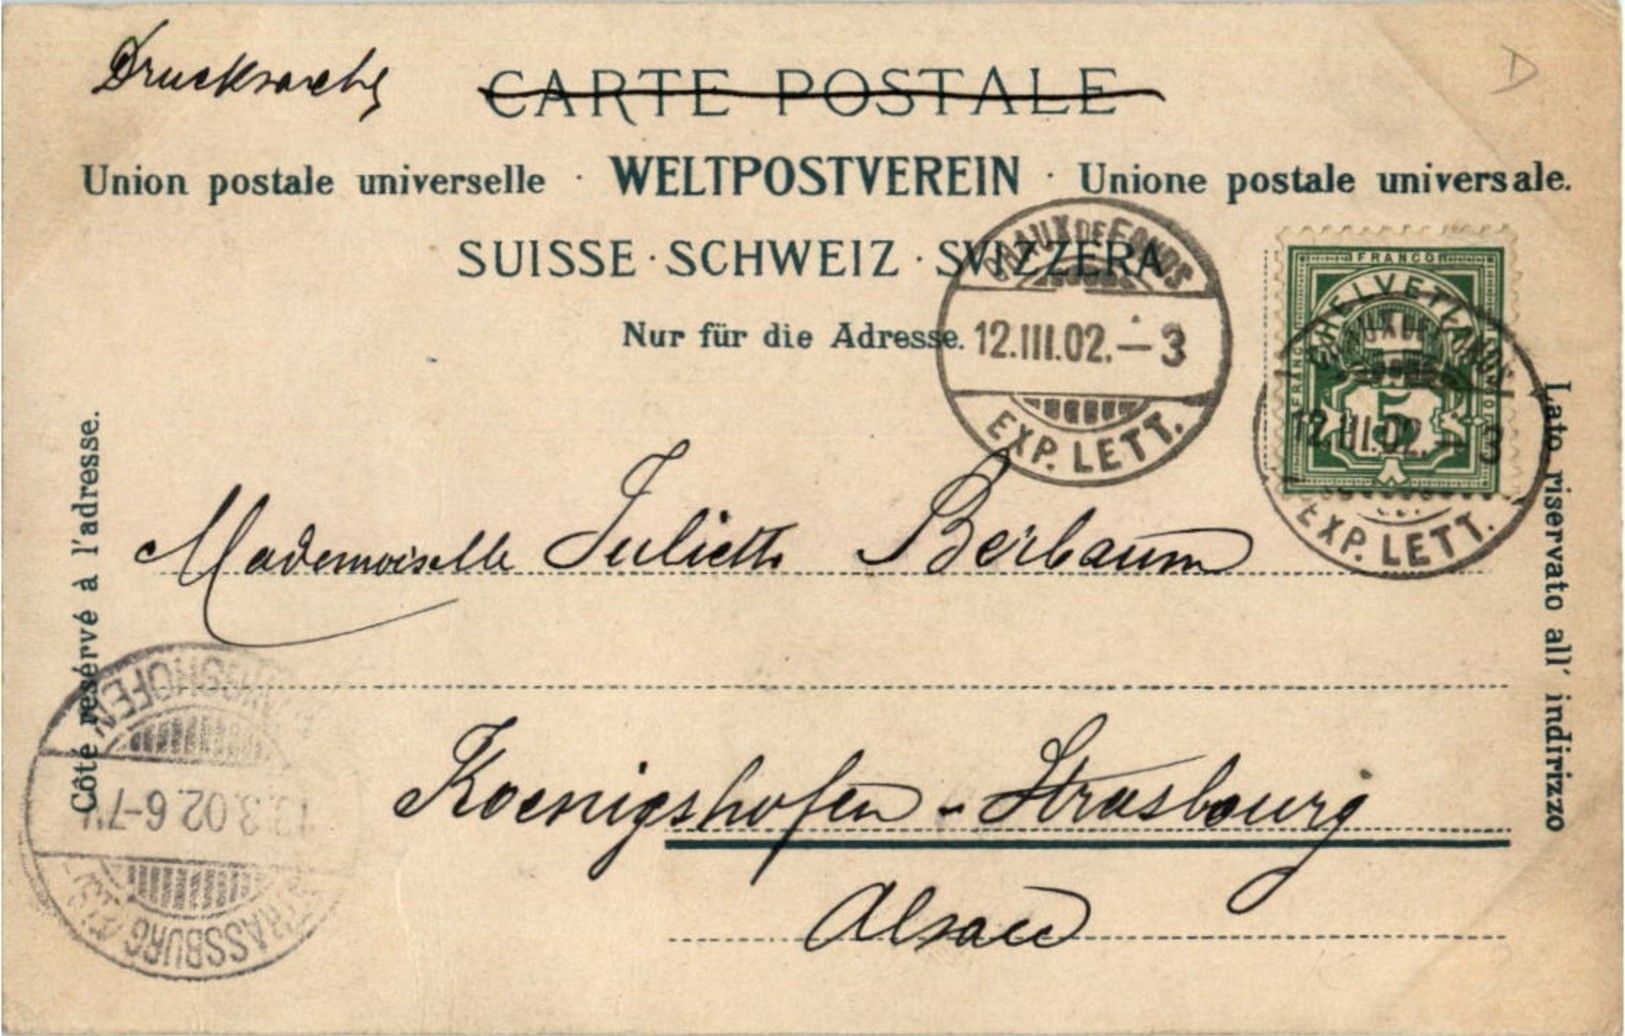 Drucksache
CARTE POSTALE
D
Union postale universelle · WELTPOSTVEREIN · Unione postale universale.
SUISSE · SCHWEIZ · SVIZZERA
Nur für die Adresse.
CHAUX DE FONDS
12.III.02.–3
EXP. LETT.
FRANCO
HELVETIA
5
12.III.02.–3
EXP. LETT.
Côté resérvé à l'adresse.
Lato riservato all' indirizzo
Mademoiselle Juliette Berbaum
KÖNIGSHOFEN
13.3.02. 6-7
STRASSBURG (ELS.)
Koenigshofen - Strasbourg
Alsace